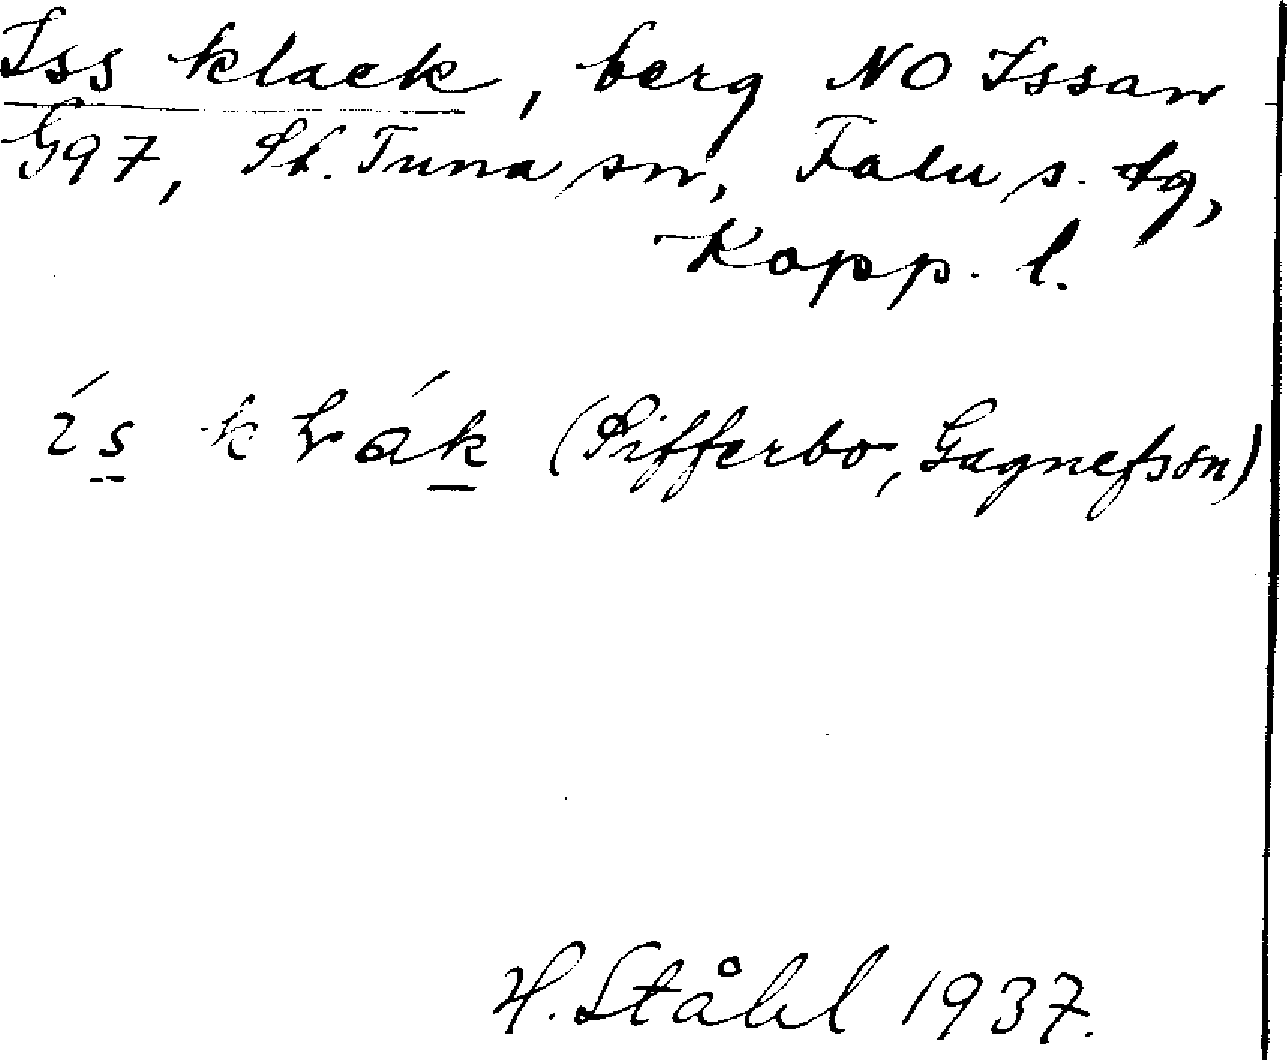 Iss klack, berg NO Issan
G97, St. Tuna sn, Falu s. tg,
Kopp. l.
ís kƚák (Sifferbo, Gagnefs sn)
H. Ståhl 1937.